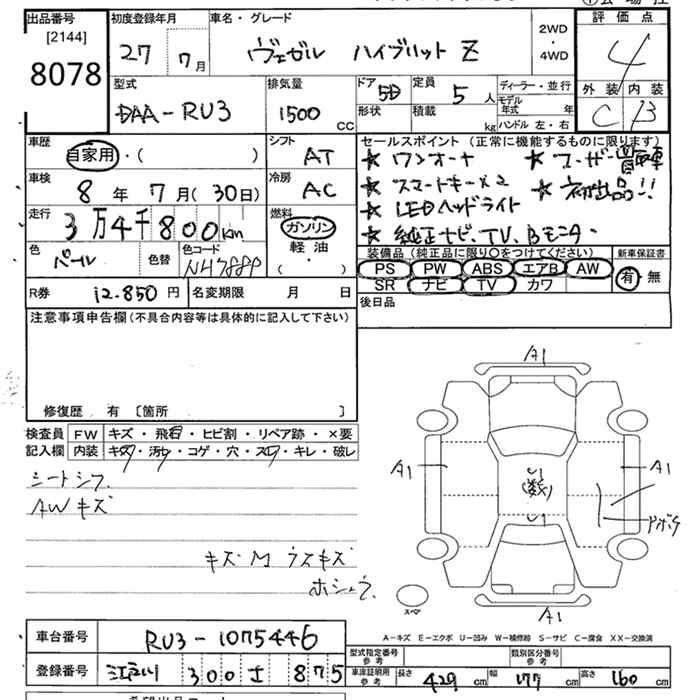 出品番号
[2144]
8078
初度登録年月
27 7月
車名・グレード
ヴェゼル ハイブリット Z
2WD
・
4WD
評価点
4
外装 内装
C B
型式
DAA-RU3
排気量
1500 CC
ドア 5D
形状
定員 5人
積載 kg
ディーラー・並行
モデル年式 年
ハンドル 左・右
車歴
自家用・( )
シフト
AT
車検
8年 7月 (30日)
冷房
AC
走行
3万4千800km
燃料
ガソリン
軽油
( ・ )
色
パール
色替
色コード
NH788P
セールスポイント (正常に機能するものに限ります)
★ ワンオーナ ★ ユーザー買取車
★ スマートキー×2 ★ 初出品!!
★ LEDヘッドライト
★ 純正ナビ、TV、Bモニター
装備品(純正品に限り○をつけてください)
PS PW ABS エアB AW
SR ナビ TV カワ
新車保証書
有・無
R券 12.850円
名変期限 月 日
後日品
注意事項申告欄(不具合内容等は具体的に記入して下さい)
修復歴 有 [箇所 ]
検査員 FW キズ・飛石・ヒビ割・リペア跡・×要
記入欄 内装 キズ・汚レ・コゲ・穴・スレ・キレ・破レ
シートシワ
AWキズ
キズ M ウスキズ
ホシュウ
A1
A1
A1
A1
スペア
A-キズ E-エクボ U-凹み W-補修跡 S-サビ C-腐食 XX-交換済
車台番号 RU3-1075446
登録番号 江戸川 300 す 875
型式指定番号 参考
類別区分番号 参考
車庫証明用 参考
長さ 429cm 幅 177cm 高さ 160cm